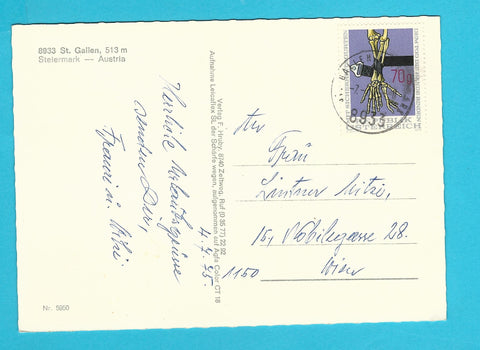 8933 St. Gallen, 513 m
Steiermark — Austria
Herzliche Urlaubsgrüsse
senden Dir,
Franzi u. Mitzi
4.7.75.
Verlag F. Hruby, 8740 Zeltweg, Ruf (0 35 77) 22 92
Aufnahme Leicaflex SL der Schärfe wegen, aufgenommen auf Agfa Color CT 18
Nr. 5950
70g
REPUBLIK
ÖSTERREICH
8933
An
Frau
Lintner Mitzi,
15, Nobilegasse 28.
1150 Wien